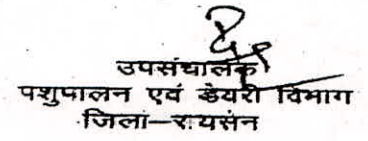 उपसंचालक
पशुपालन एवं डेयरी विभाग
जिला-रायसेन